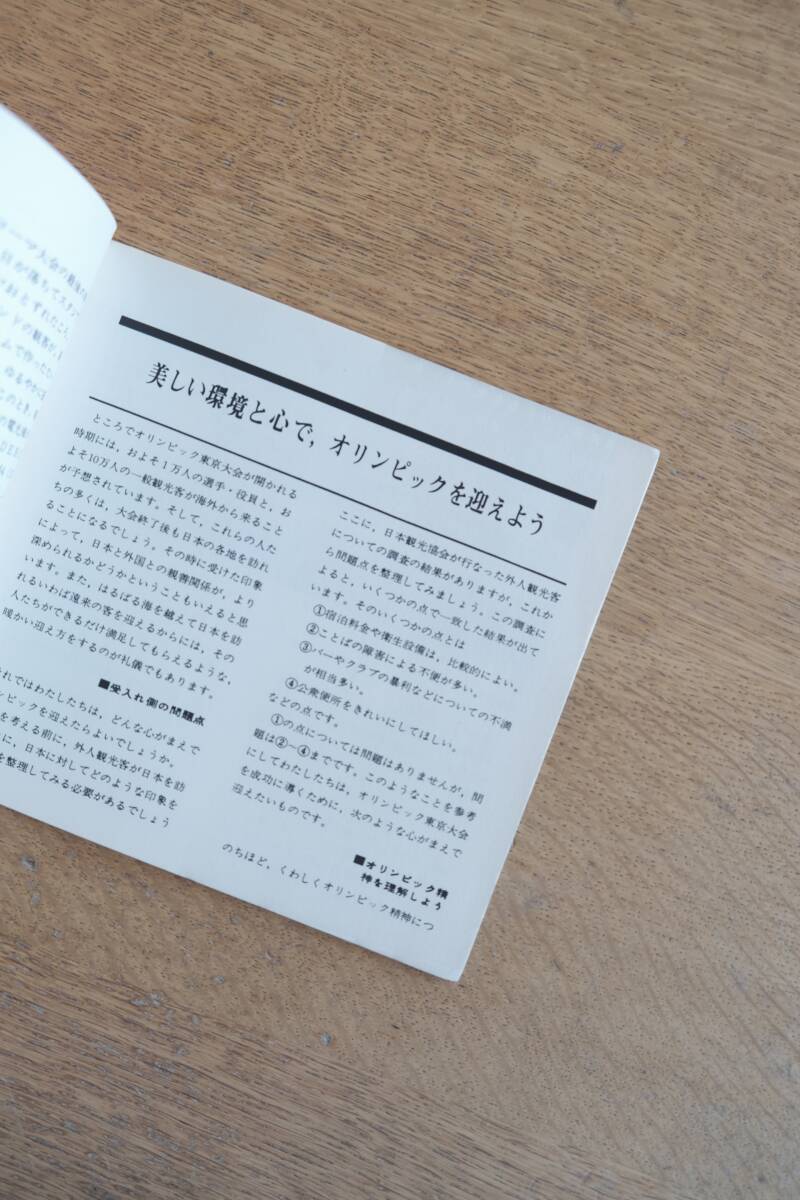 ローマ大会の最後の
日が落ちてスタン
がおとずれたころ
ンドの観客が
ムで作ったた
ゆるやかに
このとき,
の電光
美しい環境と心で,オリンピックを迎えよう
ところでオリンピック東京大会が開かれる
時期には,およそ1万人の選手・役員と,お
よそ10万人の一般観光客が海外から来ること
が予想されています。そして,これらの人た
ちの多くは,大会終了後も日本の各地を訪れ
ることになるでしょう。その時に受けた印象
によって,日本と外国との親善関係が,より
深められるかどうかということもいえると思
います。また,はるばる海を越えて日本を訪
れるいわば遠来の客を迎えるからには,その
人たちができるだけ満足してもらえるような,
暖かい迎え方をするのが礼儀でもあります。
■受入れ側の問題点
それではわたしたちは,どんな心がまえで
ンピックを迎えたらよいでしょうか。
を考える前に,外人観光客が日本を訪
に,日本に対してどのような印象を
を整理してみる必要があるでしょう
ここに,日本観光協会が行なった外人観光客
についての調査の結果がありますが,これか
ら問題点を整理してみましょう。この調査に
よると,いくつかの点で一致した結果が出て
います。そのいくつかの点とは
①宿泊料金や衛生設備は,比較的によい。
②ことばの障害による不便が多い。
③バーやクラブの暴利などについての不満
が相当多い。
④公衆便所をきれいにしてほしい。
などの点です。
①の点については問題はありませんが,問
題は②〜④までです。このようなことを参考
にしてわたしたちは,オリンピック東京大会
を成功に導くために,次のような心がまえで
迎えたいものです。
■オリンピック精
神を理解しよう
のちほど,くわしくオリンピック精神につ